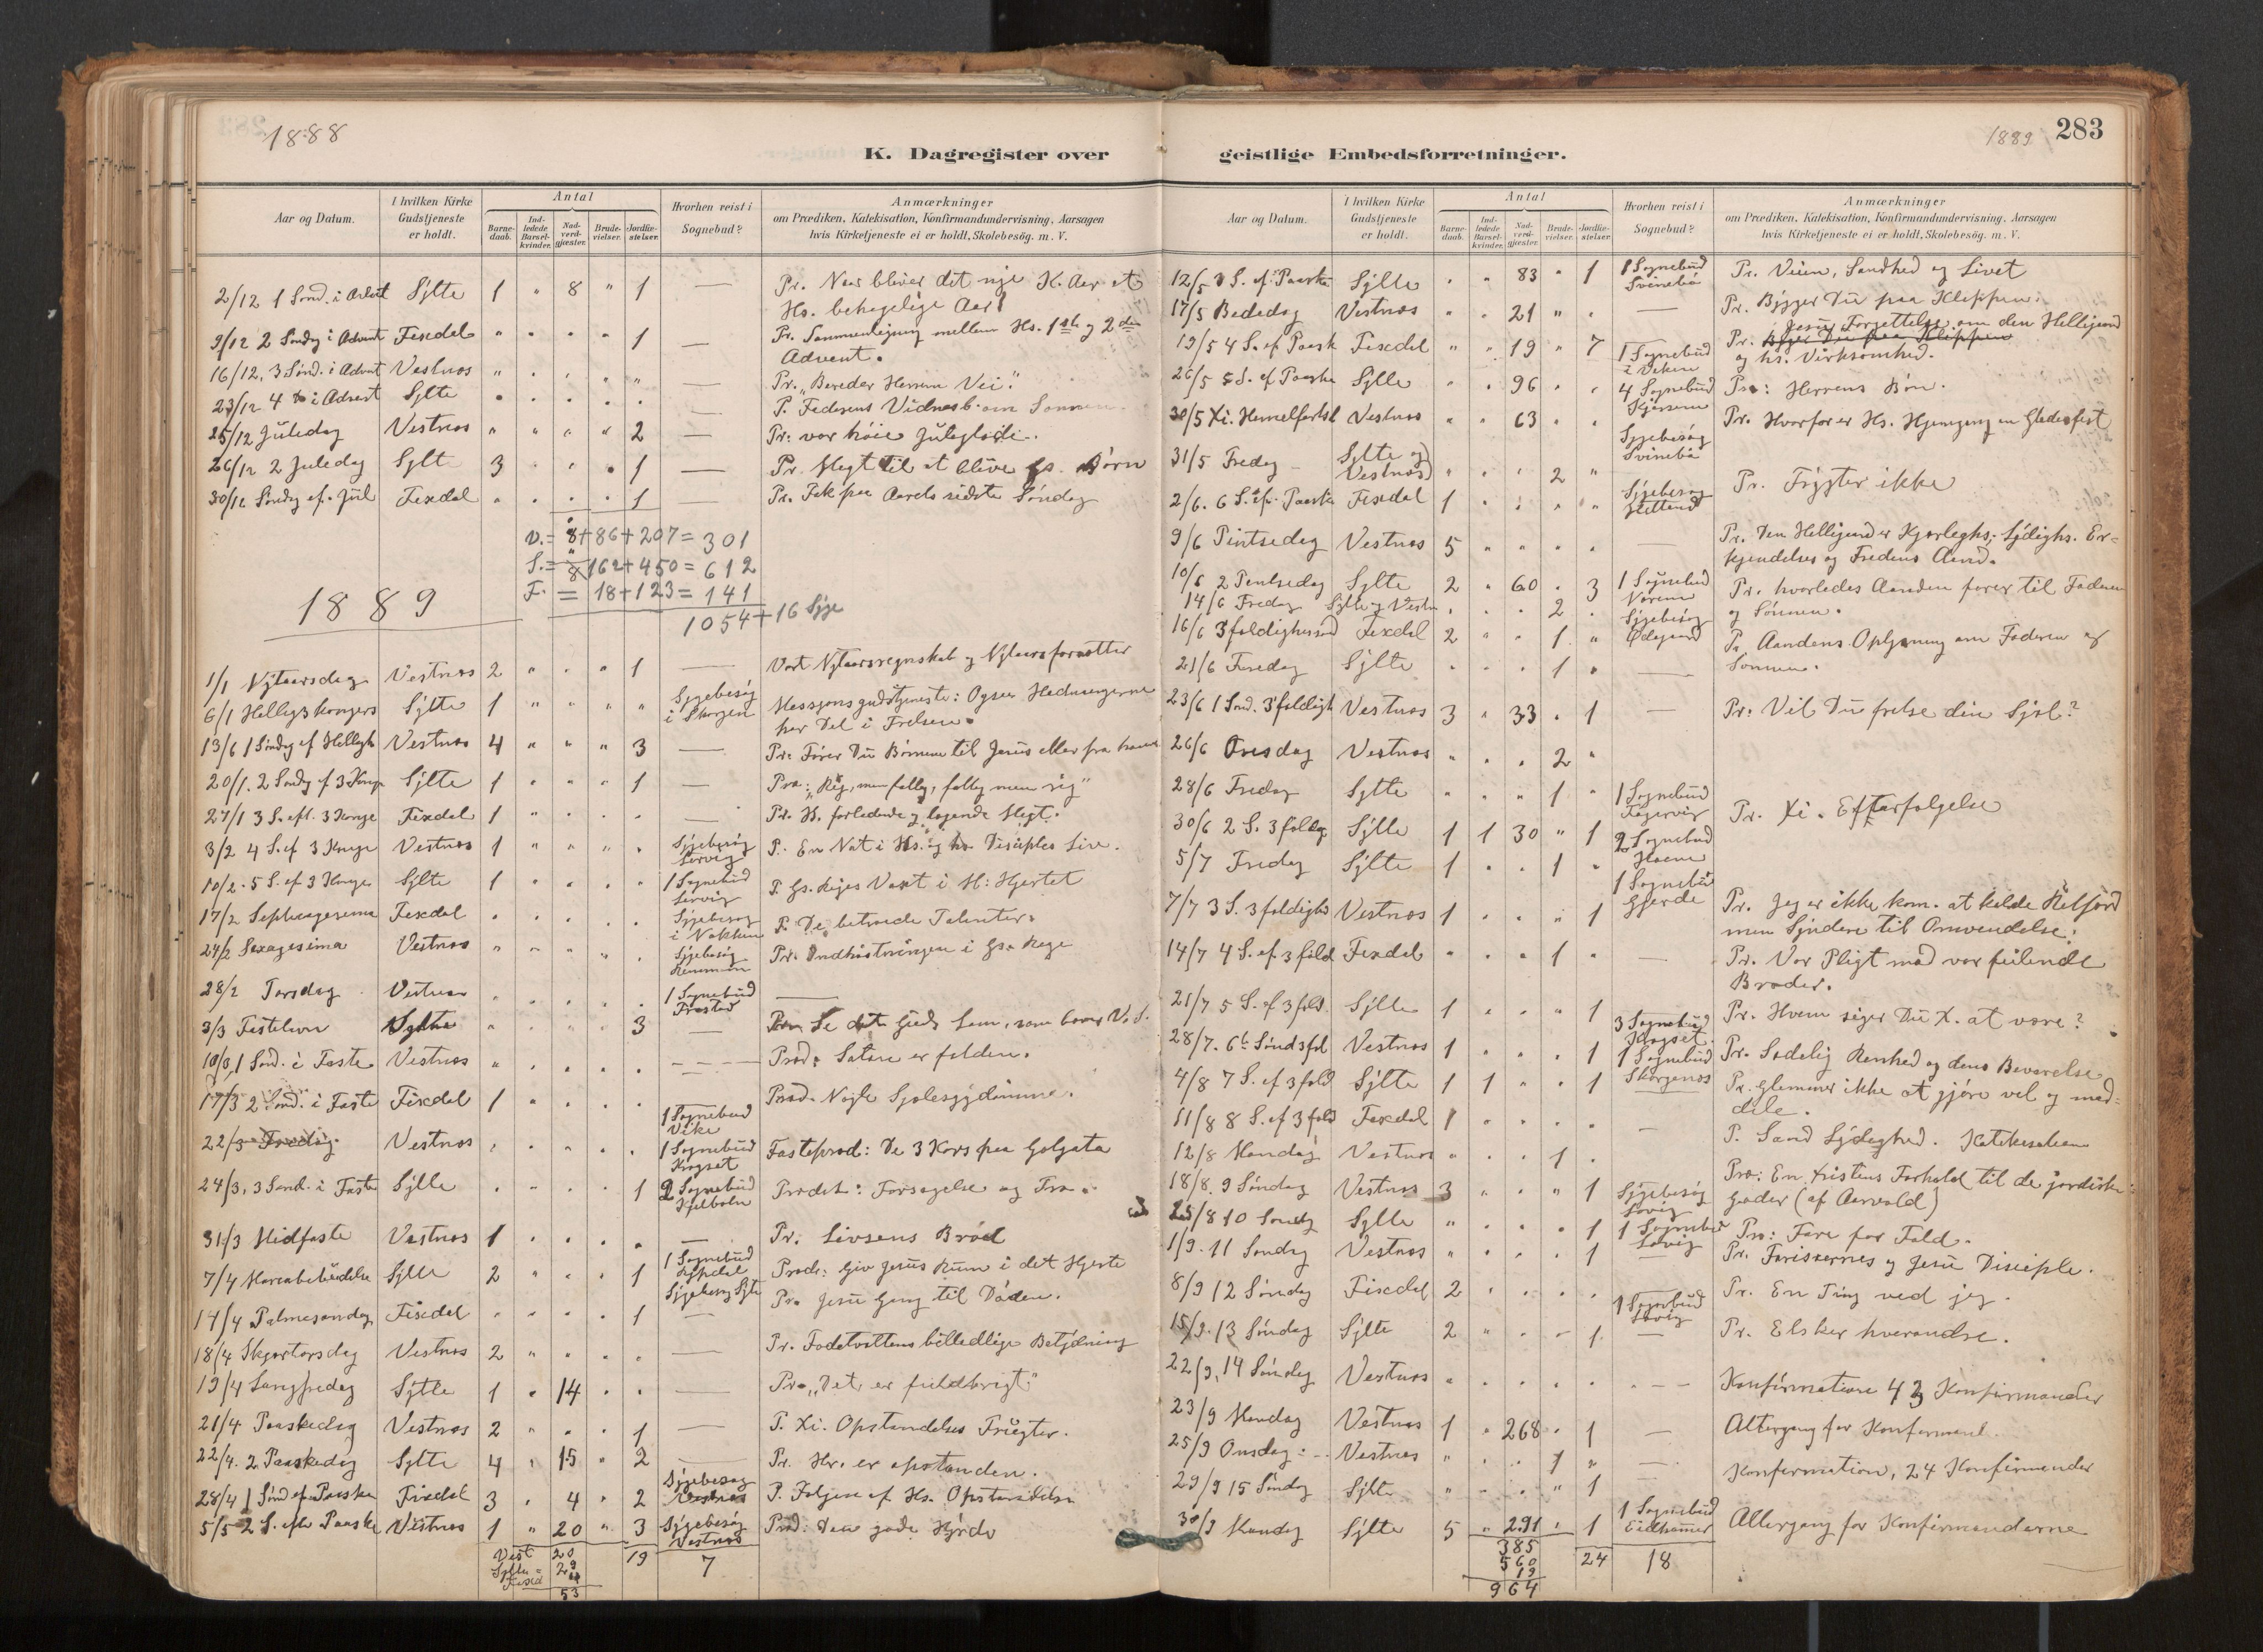 1888
K. Dagregister over
Aar og Datum.
I hvilken Kirke Gudstjeneste er holdt.
Antal
Barne-daab.
Ind-ledede Barsel-kvinder.
Nad-verd-gjæster.
Brude-vielser.
Jordfæ-stelser.
Hvorhen reist i Sognebud?
Anmærkninger
om Prædiken, Katekisation, Konfirmandundervisning, Aarsagen
hvis Kirketjeneste ei er holdt, Skolebesög. m. V.
2/12 1 Sønd. i Advt Sylte 1 " 8 " 1 — Pr. Naar bliver det nye K. Aar et
Hs. behagelige Aar!
9/12 2 Søndag i Advent Fixdal " " " " 1 — Pr. Sammenligning mellem Hs. 1ste og 2den
Advent.
16/12, 3 Sønd. i Advent Vestnæs " " " " " — Pr. "Bereder Herrens Vei."
23/12 4 i Advent Sylte P. Faderens Vidnesb. om Sønnen
25/12 Juledag Vestnæs " " " " 2 — Pr: vor høie Juleglæde.
26/12 2 Juledag Sylte 3 1 — Pr. Magt til at blive Gs. Børn
30/12 Søndag ef. Jul Fixdal 1 Pr. Tak paa Aarets sidste Søndag
V. = 8+86+207 = 301
S. = 162+450 = 612
F. = 18+123 = 141
1054+16 Syge
1889
1/1 Nytaarsdag Vestnæs 2 " " " 1 — Vort Nytaarsregnskab og Nytaarsforsætter
6/1 Hellig 3 Kongers Sylte 1 " " " " Sygebesøg i Skorgen Missionsgudstjeneste: Ogsaa Hedningerne
har Del i Frelsen.
13/6 1 Søndag ef Hellig Vestnæs 4 " " " 3 — Pr: Fører Du Børnene til Jesus eller fra ham
20/1. 2 Søndag ef 3 Konge Sylte 1 1 — Præ: "Rig, men fattig, fattig men rig"
27/1 3 S. eft. 3 Konge Fixdal 1 — Pr. forledende og løgende Slægt.
3/2 4 S. ef 3 Konge Vestnæs 1 Sygebesøg P. En Nat i Hs. og hs Disciples Liv.
10/2. 5 S. ef 3 Konge Sylte 1 1 Sognebud P. Gs. Riges Vækst i M: Hjertet
17/2 Septuagesima Fixdal Sygebesøg i Nakken P. De betroede Talenter.
24/2 Sexagesima Vestnæs Sygebesøg Pr. Indhøstningen i Gs. Rige
28/2 Torsdag Vestnæs 1 Sognebud —
3/3 Fastelavn Sylte 3 — Se det Guds Lam, som bærer V. S.
10/3, 1 Sønd. i Faste Vestnæs — Præd. Satan er falden.
17/3 2 Sønd. i Faste Fixdal 1 Præd. Nogle Sjælesygdomme.
1 Sognebud Vike
22/3 Fredag Vestnæs 1 Sognebud Krogset Fastepræd: De 3 Kors paa Golgata
24/3, 3 Sønd. i Faste Sylte 1 2 Sognebud Prædik: Forsagelse og Tro.
31/3 Midfaste Vestnæs 1 — Pr. Livsens Brød
7/4 Mariabebudelse Sylte 2 1 1 Sognebud Præd: Giv Jesus Rum i det Hjerte
Sygebesøg Sylte
14/4 Palmesøndag Fixdal 1 — Pr. Jesu Gang til Døden.
18/4 Skjærtorsdag Vestnæs 2 — Pr. Fodetvættens billedlige Betydning
19/4 Langfredag Sylte 1 14 — Pr. "Det er fuldbragt."
21/4 Paaskedag Vestnæs 2 1 — P. Xi. Opstandelses Frugter.
22/4. 2 Paaskedag Sylte 4 15 2 — Pr. Hr. er opstanden.
28/4 1 Sønd ef Paaske Fixdal 3 4 2 Sygebesøg P. Følgene af Hs. Opstandelse
5/5 2 S. efter Paaske Vestnæs 1 " 20 " 3 Sygebesøg Vestnæs Præd: Den gode Hyrde
Vest 20
Sylte = 29
Fixd 4
53
19
7
1889 283
geistlige Embedsforretninger.
Aar og Datum.
I hvilken Kirke Gudstjeneste er holdt.
Antal
Barne-daab.
Ind-ledede Barsel-kvinder.
Nad-verd-gjæster.
Brude-vielser.
Jordfæ-stelser.
Hvorhen reist i Sognebud?
Anmærkninger
om Prædiken, Katekisation, Konfirmandundervisning, Aarsagen
hvis Kirketjeneste ei er holdt, Skolebesög. m. V.
12/5 3 S. ef. Paaske Sylte " " 83 " 1 1 Sognebud Svinebø Pr. Veien, Sandhed og Livet
17/5 Bededag Vestnæs " " 21 " " — Pr. Bygger Du paa Klippen.
Jesu Forjættelse om den Helligaand
19/5 4 S. ef Paask Fixdal " " 19 " 7 1 Sognebud i Viken Pr. Bygger Du paa Klippen
og hs. Virksomhed.
26/5 5 S. ef Paaske Sylte 96 4 Sognebud Præ: Herrens Bøn.
30/5 Xi. Himmelfartsd Vestnæs 63 Sygebesøg Svinebø Pr. Hvorfor er Hs. Hjemgang en Glædesfest
31/5 Fredag Sylte og Vestnæs 2 "
2/6. 6 S. ef. Paaske Fixdal 1 Sygebesøg Pr. Frygter ikke
9/6 Pintsedag Vestnæs 5 — Pr. Den Helligaand er Kjærligheds, Lydigheds. Er=
kjendelses og Fredens Aand.
10/6 2 Pentsedag Sylte 2 60 3 1 Sognebud Pr. hvorledes Aanden fører til Faderen
og Sønnen.
14/6 Fredag Sylte og Vestn 2 Sygebesøg Ødegaard
16/6 3foldighedssønd Fixdal 2 1 " P. Aandens Oplysning om Faderen og
Sønnen.
21/6 Fredag Sylte 1 —
23/6 1 Sønd. 3foldigh Vestnæs 3 33 1 — Pr: Vil Du frelse din Sjæl?
26/6 Onsdag Vestnæs 2
28/6 Fredag Sylte 1 1 Sognebud
30/6 2 S. 3foldig Sylte 1 1 30 " 1 2 Sognebud Pr. Xi. Efterfølgelse
5/7 Fredag Sylte 1 1 1 Sognebud Gjerde
7/7 3 S. 3foldighd Vestnæs 1 1 Pr. Jeg er ikke kom. at kalde Retfærd
men Syndere til Omvendelse.
14/7 4 S. ef. 3 fold Fixdal 1 — Pr. Vor Pligt mod vor feilende
Broder.
21/7 5 S. ef 3 fold. Sylte 1 1 Pr. Hvem siger Du X. at være?
3 Sognebud Krogset
28/7. 6te Sønd 3 fol Vestnæs 1 1 1 Sognebud Skorgenæs Pr. Sædelig Renhed og dens Bevarelse
4/8 7 S. ef 3 fold Sylte 1 1 1 Pr. glemmer ikke at gjøre vel og med=
dele.
11/8 8 S. ef 3 fold Fixdal 1 — P. Sand Lydighed. Katekisation
12/8 Mandag Vestnæs 1
18/8. 9 Søndag Vestnæs 3 1 Sygebesøg Præ: En Kristens Forhold til de jordiske
Goder (af Aarvold)
25/8 10 Søndg Sylte 1 1 Sognebud Præ: Fare for Fald.
1/9. 11 Søndag Vestnæs 1 — Pr. Farisæernes og Jesu Disciple.
8/9 12 Søndag Fixdal 2 Pr. En Ting ved jeg.
1 Sognebud
15/9. 13 Søndag Sylte 2 1 — Pr. Elsker hverandre.
22/9, 14 Søndag Vestnæs — Konfirmation 43 Konfirmander
23/9 Mandag Vestnæs 1 268 1 — Altergang for Konfirmand.
25/9 Onsdag: Vestnæs 1 —
29/9 15 Søndag Sylte 1 Konfirmation, 24 Konfirmander
30/9 Mandag Sylte 5 291 1 1 Sognebud Eidhammer Altergang for Konfirmanderne
385
560
19
964
24
18